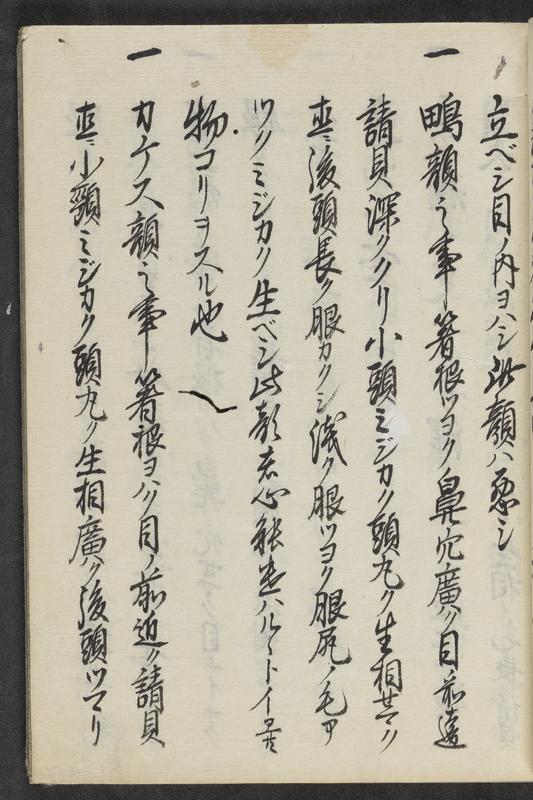 立ベシ目ノ内ヨハシ此顔ハ悪シ
一 鴫顔之事 箸根ツヨク鼻穴廣ク目前遠
請貝深ククリ小頸ミジカク頭丸ク生相せハク
直ニ後頭長ク眼カクシ浅ク眼ツヨク眼尻ノ毛
ツクミジカク生ベシ此
物コリヲスル也
一 カケス顔之事 箸根ヨハク目ノ前近ク請貝
直ニ小頸ミジカク頭丸ク生相廣ク後頭ツマリ